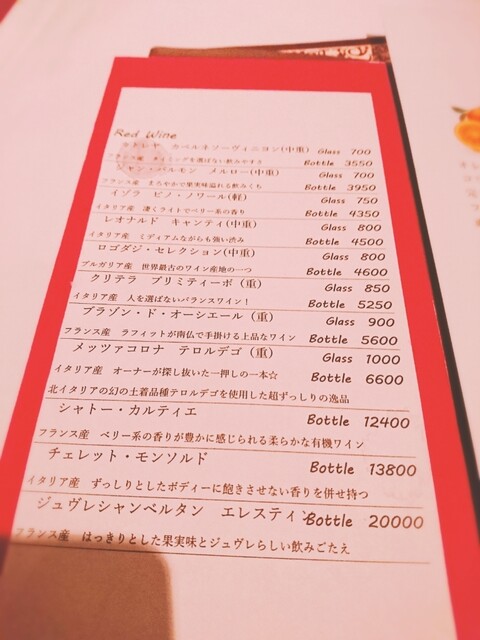 Red Wine
カトレヤ　カベルネソーヴィニヨン(中重) Glass 700
フランス産　タイミングを選ばない飲みやすさ Bottle 3550
ジャン・バルモン　メルロー(中重) Glass 700
フランス産　まろやかで果実味溢れる飲みくち Bottle 3950
イゾラ　ピノ・ノワール(軽) Glass 750
イタリア産　凄くライトでベリー系の香り Bottle 4350
レオナルド　キャンティ(中重) Glass 800
イタリア産　ミディアムながらも強い渋み Bottle 4500
ロゴダジ・セレクション(中重) Glass 800
ブルガリア産　世界最古のワイン産地の一つ Bottle 4600
クリテラ　プリミティーボ（重） Glass 850
イタリア産　人を選ばないバランスワイン！ Bottle 5250
ブラゾン・ド・オーシエール（重） Glass 900
フランス産　ラフィットが南仏で手掛ける上品なワイン Bottle 5600
メッツァコロナ　テロルデゴ（重） Glass 1000
イタリア産　オーナーが探し抜いた一押しの一本☆ Bottle 6600
北イタリアの幻の土着品種テロルデゴを使用した超ずっしりの逸品
シャトー・カルティエ Bottle 12400
フランス産　ベリー系の香りが豊かに感じられる柔らかな有機ワイン
チェレット・モンソルド Bottle 13800
イタリア産　ずっしりとしたボディーに飽きさせない香りを併せ持つ
ジュヴレシャンベルタン　エレスティン Bottle 20000
フランス産　はっきりとした果実味とジュヴレらしい飲みごたえ